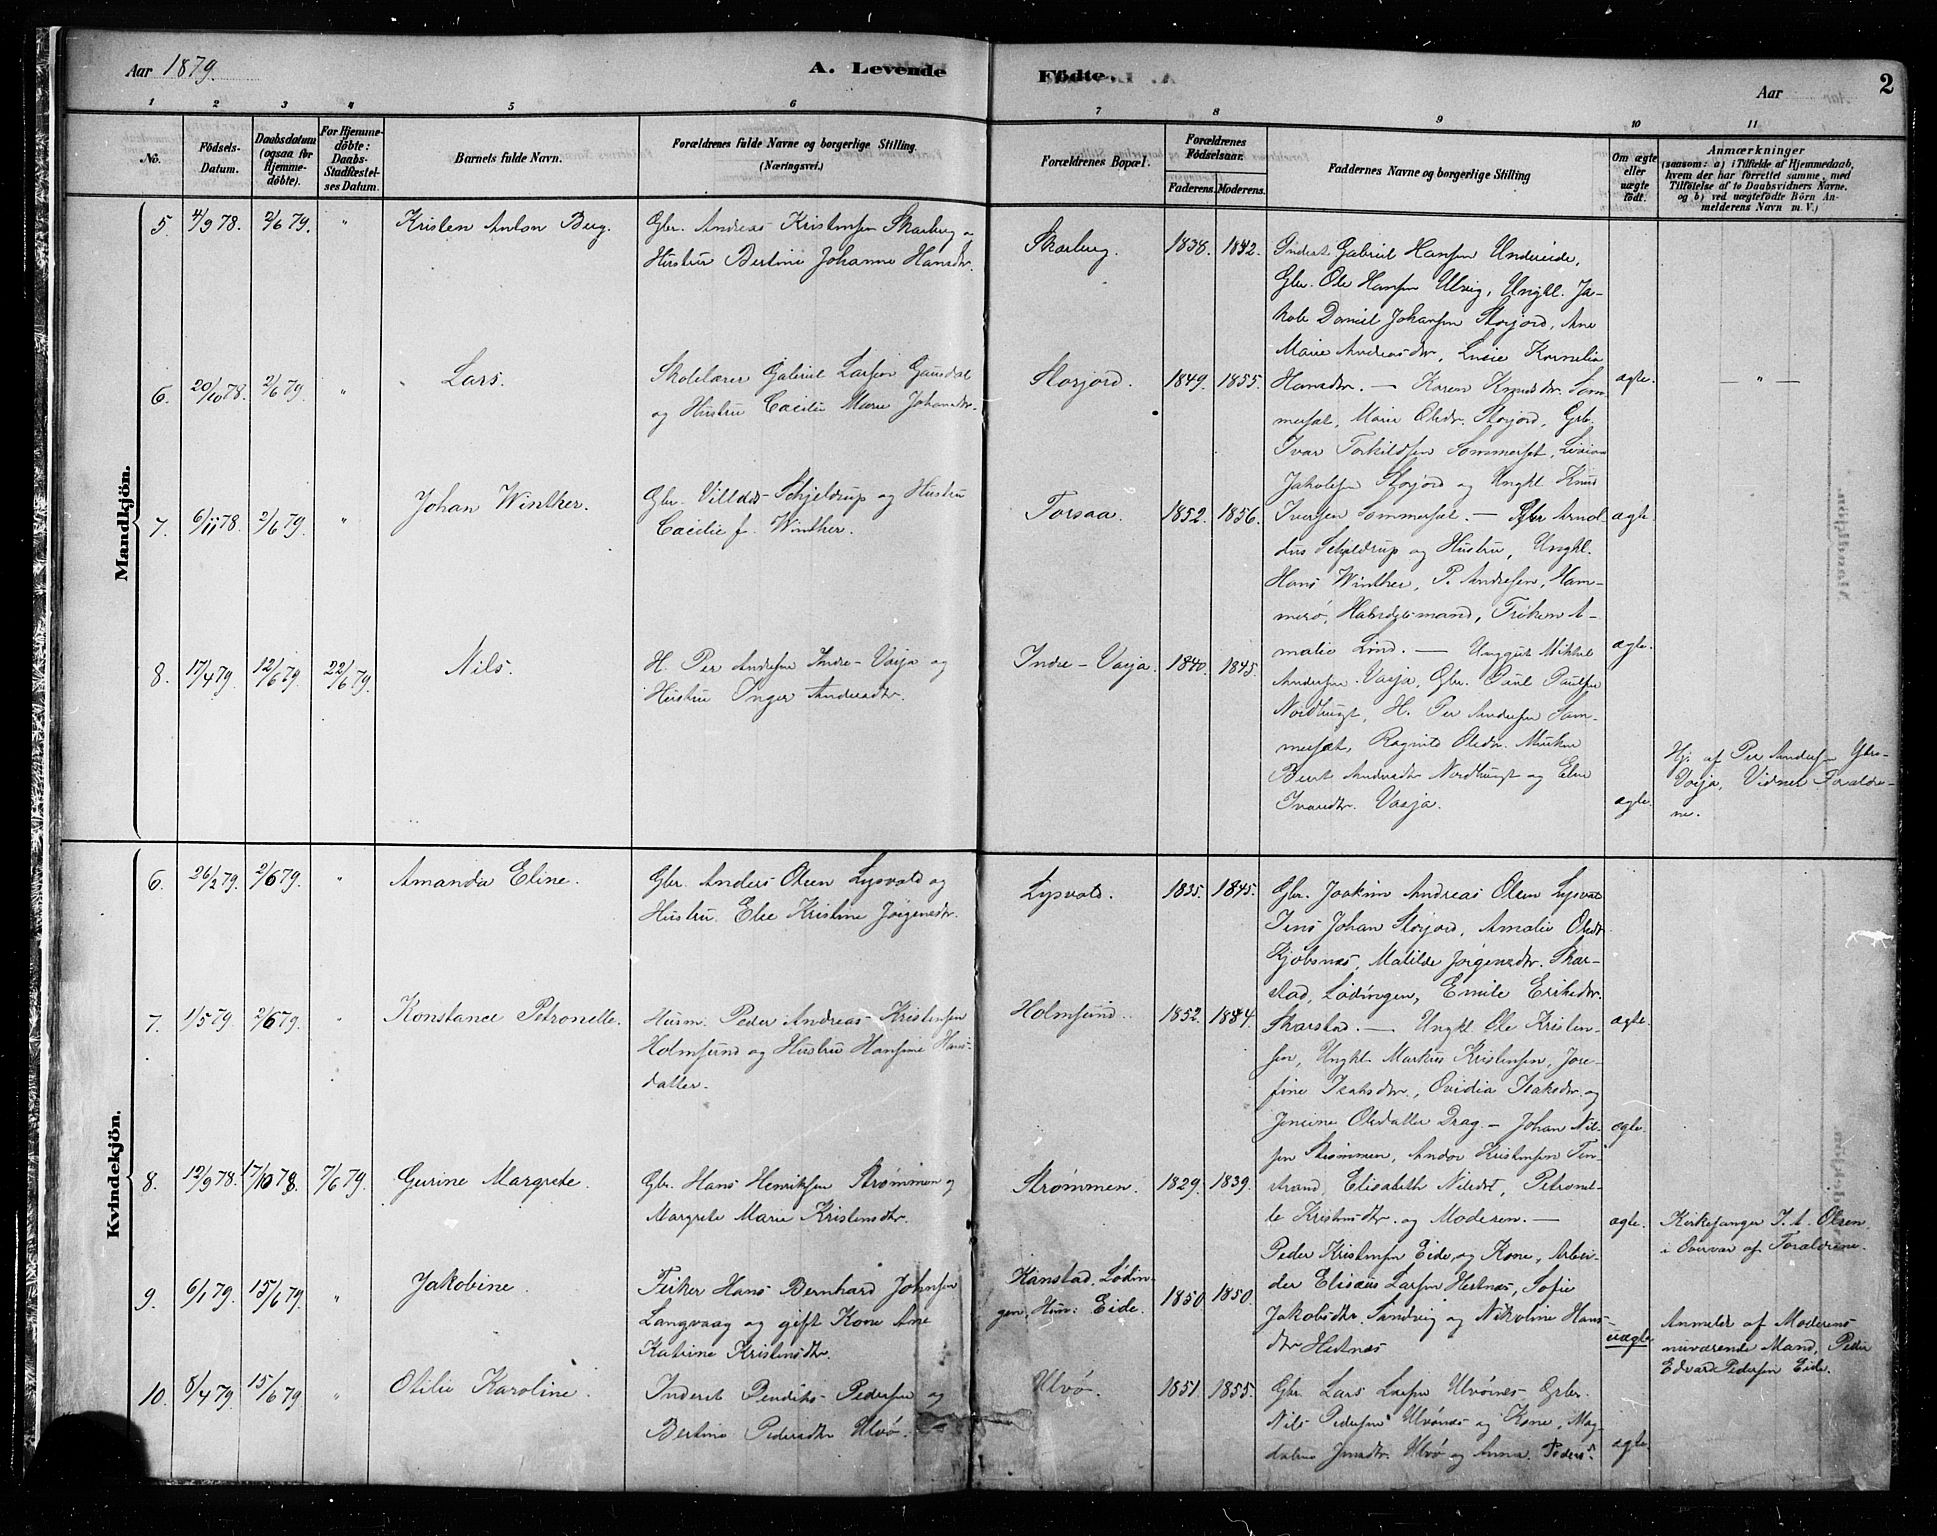 Aar 1879.
A. Levende
Födte.
Aar
2
1 2 3 4 5 6 7 8 9 10 11
No.
Födsels-
Datum.
Daabsdatum
(ogsaa for
Hjemme-
döbte).
For Hjemme-
döbte:
Daabs-
Stadfæstel-
ses Datum.
Barnets fulde Navn.
Forældrenes fulde Navne og borgerlige Stilling.
(Næringsvei.)
Forældrenes Bopæl.
Forældrenes
Födselsaar.
Faderens. Moderens.
Faddernes Navne og borgerlige Stilling
Om ægte
eller
uægte
født.
Anmærkninger
(saasom: a) i Tilfælde af Hjemmedaab,
hvem der har forrettet samme, med
Tilföielse af to Daabsvidners Navne.
og b) ved uægtefödte Börn An-
melderens Navn m.V.)
Mandkjön.
5. 4/9 78. 2/6 79. " Kristen Anton Berg.
Gbr. Andreas Kristensen Skarberg og
Hustru Bertine Johanne Hansdtr.
Skarberg. 1838. 1842.
Inderst Gabriel Hansen Undereide,
Gbr. Ole Hansen Ulvig, Ungkl. Ja-
kob Daniel Johansen Storjord, Ane
Marie Andreasdtr, Lusie Kornelia
Hansdtr. — Karen Knudsdtr. Som-
ægte.
— " —
6. 20/10 78. 2/6 79. " Lars.
Skolelærer Gabriel Larsen Gausdal
og Hustru Cæcilie Marie Johansdtr.
Storjord. 1849. 1855.
mersæt, Marie Olsdr. Storjord, Gbr.
Ivar Torkildsen Sommersæt,
Jakobsen Storjord og Ungkl. Knud
Iversen Sommersæt. — Arnol-
ægte.
7. 6/11 78. 2/6 79. " Johan Winther.
Gbr. Villads Schjeldrup og Hustru
Cæcilie f. Winther.
Torsaa. 1852. 1856.
dus Schjeldrup og Hustru, Ungkl.
Hans Winther, P. Andresen, Ham-
merø, Handelsmand, Frøken A-
malie Lind. — Unggut Mikkel
ægte.
8. 17/4 79. 12/6 79. 22/6 79. Nils.
H. Per Andersen Indre-Vasja og
Hustru Inger Andersdtr.
Indre-Vasja. 1840. 1845.
Andersen Vasja, Gbr. Paul Paulsen
Nordbugt, H. Per Andersen Som-
mersæt, Ragnild Olsdr.
Berit Andersdtr Nordbugt og Elen
Ivarsdtr. Vasja.
ægte.
Hj. af Per Andersen
Vasja, Vidner Forældre-
ne.
Kvindekjön.
6. 26/2 79. 2/6 79. " Amanda Eline.
Gbr. Anders Olsen Lysvold og
Hustru Else Kristine Jørgensdtr.
Lysvold. 1835. 1845.
Gbr. Joakim Andreas Olsen Lysvold
Jens Johan Storjord, Amalie Olsdr
Kjobsnæs, Matilde Jørgensdtr. Skar-
stad, Lødingen, Emile Eriksdtr.
Skarstad. — Ungkl. Ole Kristen-
ægte.
7. 1/5 79. 2/6 79. " Konstance Petronelle.
Husm. Peder Andreas Kristensen
Holmsund og Hustru Hansine Hans-
datter.
Holmsund. 1852.
sen, Ungkl. Markus Kristensen, Jose-
fine Isaksdtr., Ovidia Isaksdtr. og
Jensine Olsdatter Drag. — Johan Nil-
ægte.
8. 12/9 78. 17/10 78. 7/6 79. Gurine Margrete.
Gbr. Hans Henriksen Strømmen og
Margrete Marie Kristensdtr.
Strømmen. 1829. 1839.
sen Strømmen, Andor Kristensen Fin-
strand, Elisabeth Nilsdtr, Petronel-
le Kristensdtr. og Moderen. —
ægte.
Kirkesanger J. A. Olsen
i Nærvær af Forældrene.
9. 6/1 79. 15/6 79. " Jakobine.
Fisker Hans Bernhard Johnsen
Langvaag og gift Kone Ane
Katrine Kristensdtr.
Kanstad, Lødin-
gen, Hun: Eide. 1850. 1850.
Peder Kristensen Eide og Kone, Arbei-
der Elisæus Larsen Hestnæs, Sofie
Jakobsdtr Sandvig og Nikoline Hans-
dtr Hestnæs
uægte
Anmeldt af Moderens
nuværende Mand, Peder
Edvard Pedersen Eide.
10. 8/4 79. 15/6 79. " Otilie Karoline.
Inderst Pendiks Pedersen og
Bertine Pedersdtr Ulvø.
Ulvø. 1851. 1855.
Gbr. Lars Larsen Ulvønes, Gbr.
Nils Pedersen Ulvønæs og Kone, Mag-
dalena Jensdtr. Ulvø og Anna Peders-
ægte.